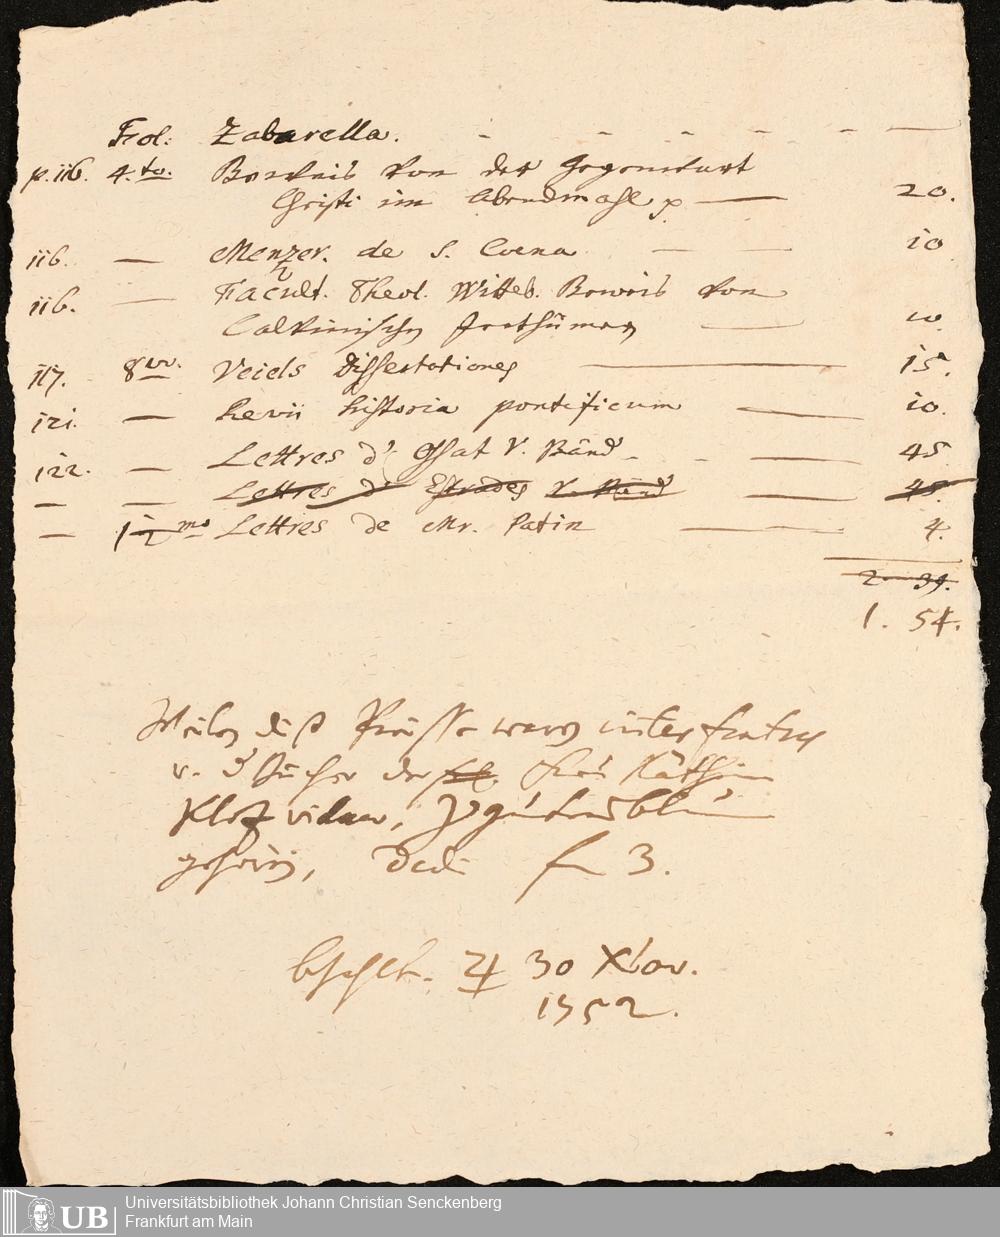 Fol: Zabarella. - - - - - —
p. 116. 4.to. Beweis von der Gegenwart
Christi im Abendmahl p — 20.
116. — Menzer. de S. Coena — — 10
116. — Facult. Theol. Witteb. Beweis von
Calvinischen Irrthümern — 10.
117. 8vo. Veiels Dissertationes — 15.
121. — Hevii historia pontificum — 10.
122. — Lettres d' Ossat V. Bänd - - — 45
— — Lettres d' Estrades V. Bänd — 45.
— 12mo Lettres de Mr. Patin — — 4.
2. 39.
1. 54.
Weilen diß Preisse waren unter
v. d. Bücher der Frau Räthin
gehören, dedi f 3.
bezhlt. ♃ 30 Xbr.
1752.
UB
Universitätsbibliothek Johann Christian Senckenberg
Frankfurt am Main